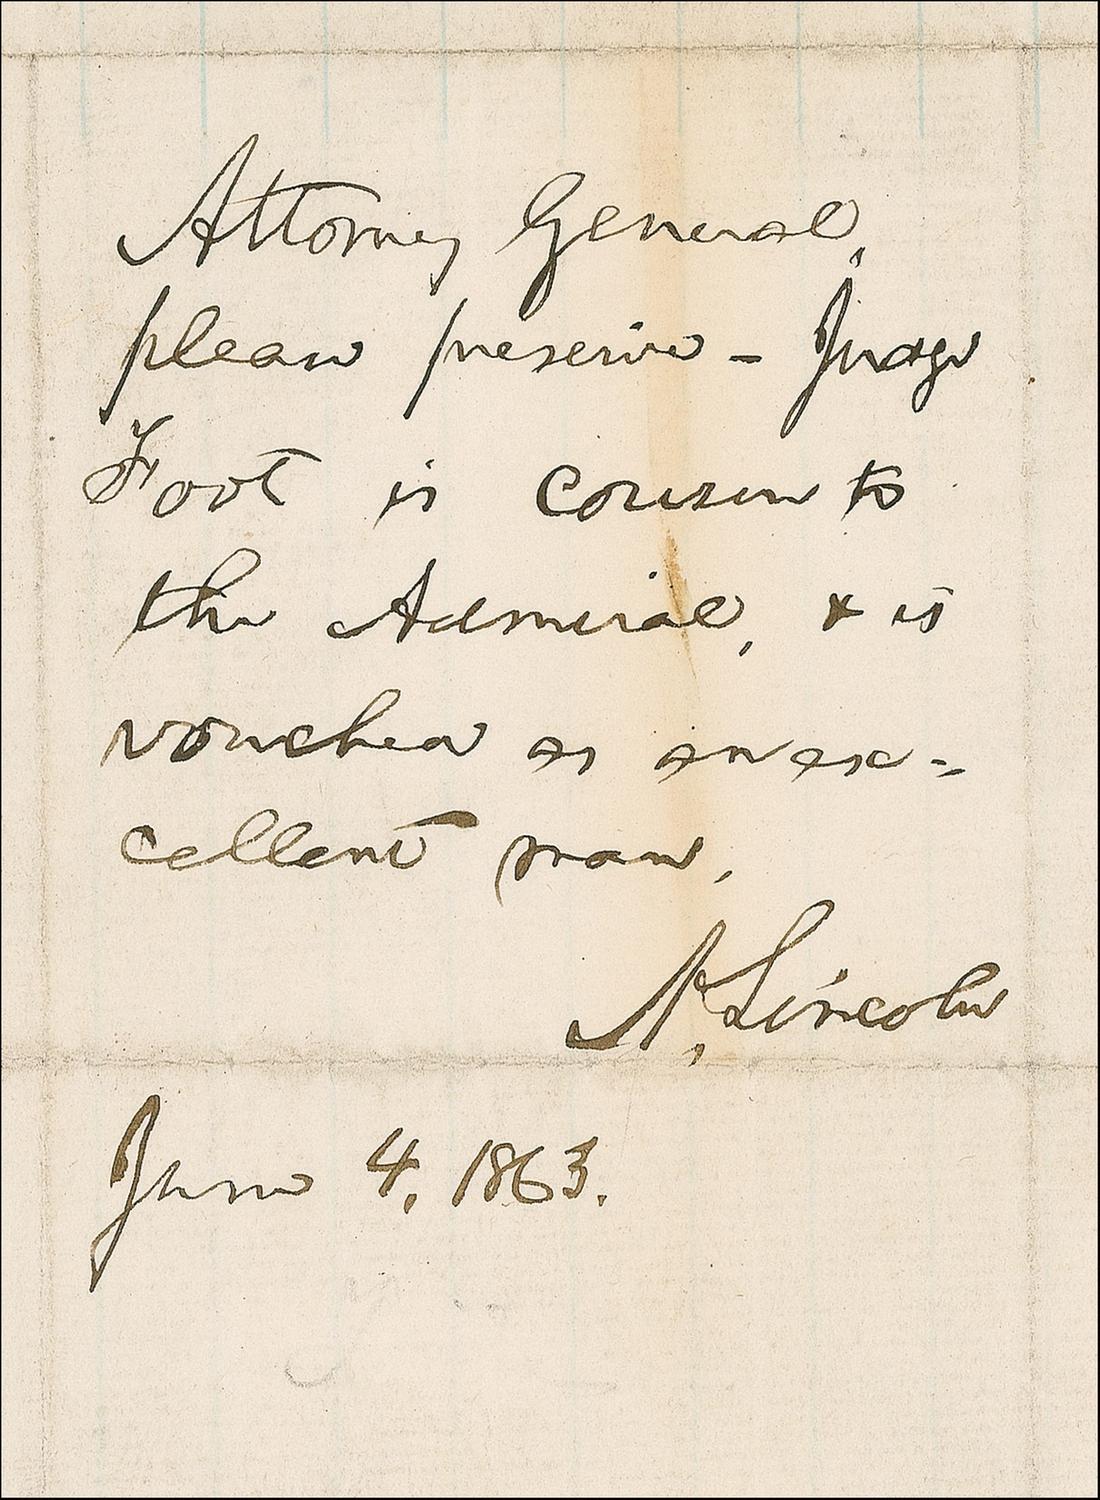 Attorney General,
please preserve – Judge
Foot is cousin to
the Admiral, & is
vouched as an ex=
cellent man,
A. Lincoln
June 4, 1863.